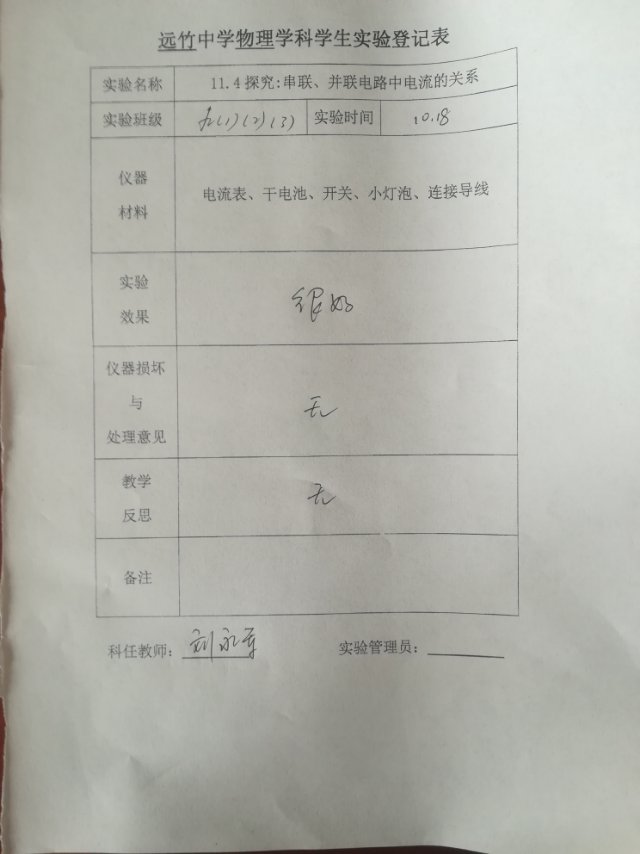 远竹中学物理学科学生实验登记表
实验名称 11.4探究:串联、并联电路中电流的关系
实验班级 九(1)(2)(3) 实验时间 10.18
仪器
材料
电流表、干电池、开关、小灯泡、连接导线
实验
效果
很好
仪器损坏
与
处理意见
无
教学
反思
无
备注
科任教师: 刘永军 实验管理员: